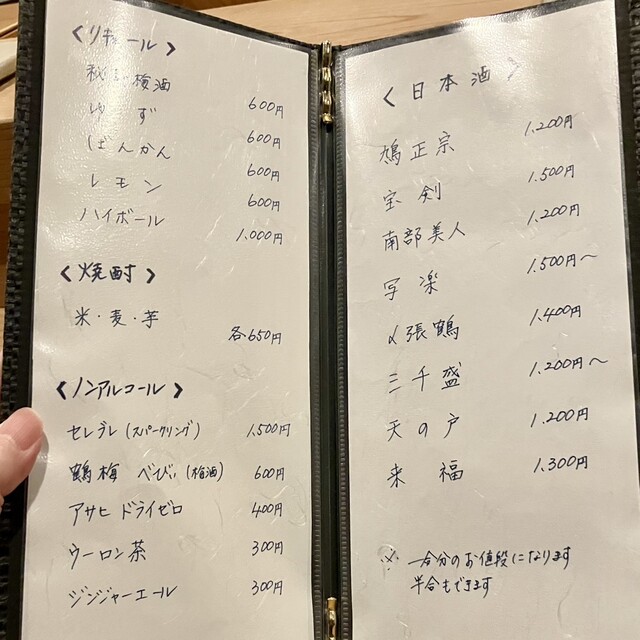 <リキュール>
梅酒 600円
ゆず 600円
ばんかん 600円
レモン 600円
ハイボール 1.000円
<焼酎>
米・麦・芋 各650円
<ノンアルコール>
セレブレ(スパークリング) 1.500円
鶴梅 べびぃ(梅酒) 600円
アサヒ ドライゼロ 400円
ウーロン茶 300円
ジンジャーエール 300円
<日本酒>
鳩正宗 1.200円
宝剣 1.500円
南部美人 1.200円
写楽 1.500円〜
〆張鶴 1.400円
三千盛 1.200円〜
天の戸 1.200円
来福 1.300円
※ 一合分のお値段になります
半合もできます